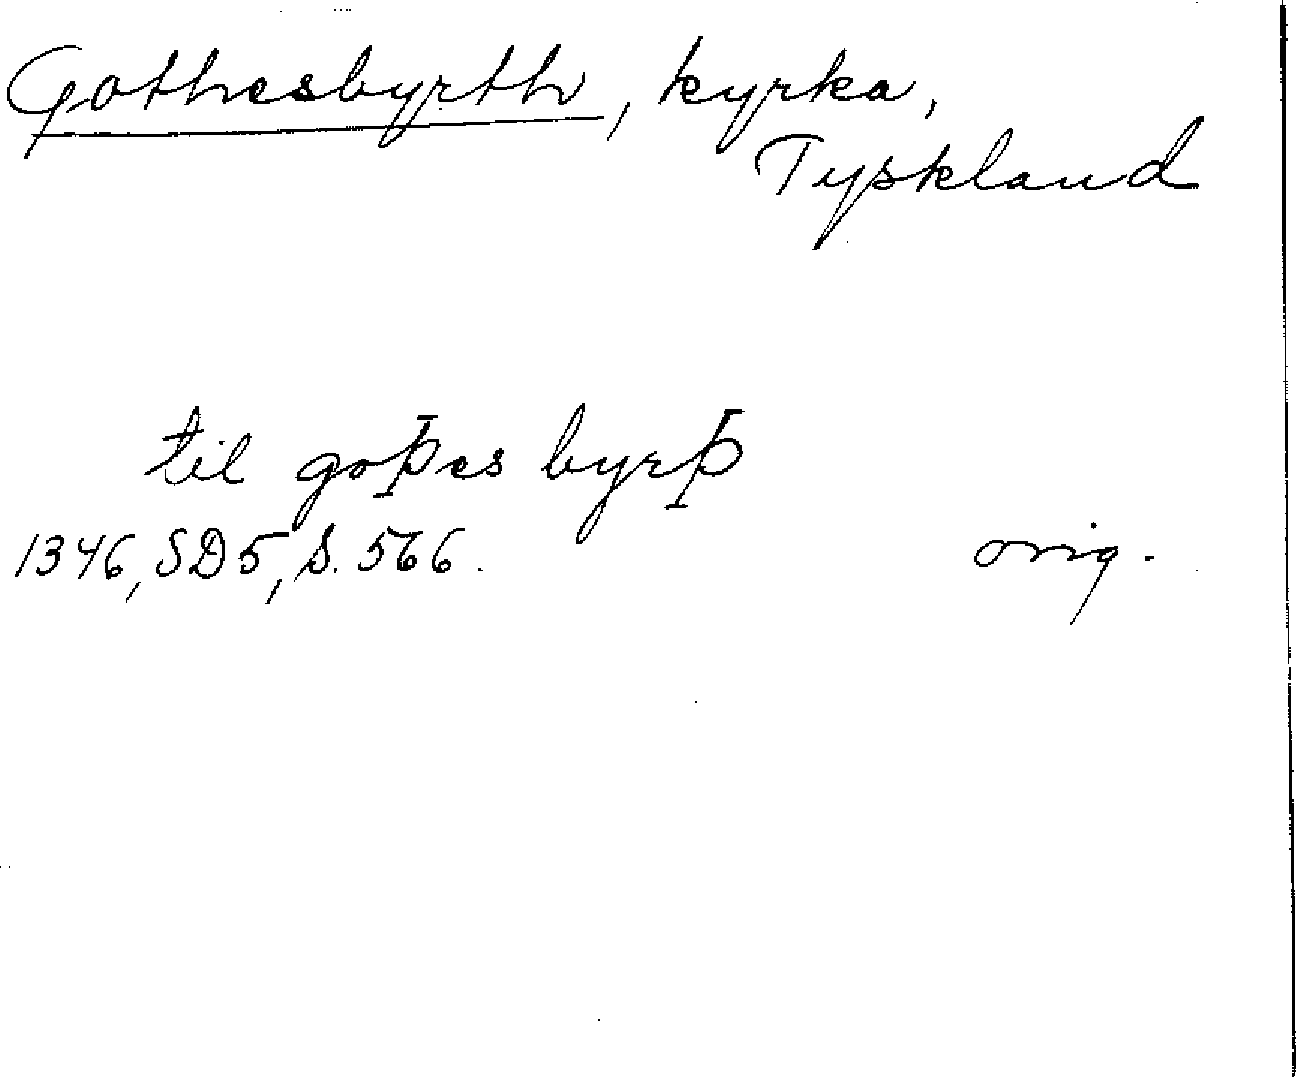 Gothesbyrth, kyrka,
Tyskland
til goþes byrþ
1346, SD5, S. 566. orig.